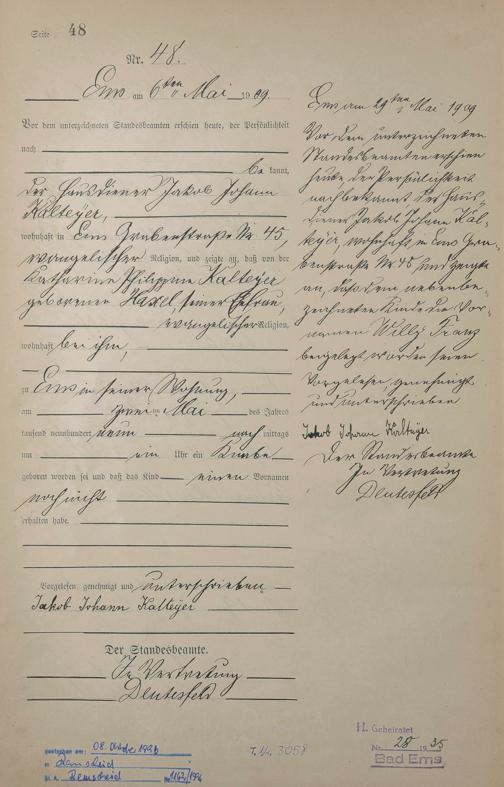 Seite 48
Nr. 48.
Ems am 6ten Mai 1909.
Vor dem unterzeichneten Standesbeamten erschien heute, der Persönlichkeit
nach
bekannt,
der Hausdiener Jakob Johann
Kalteyer,
wohnhaft in Ems Grabenstraße Nr 45,
evangelischer Religion, und zeigte an, daß von der
Katharine Philippine Kalteyer
geborenen Haxel, seiner Ehefrau,
evangelischer Religion,
wohnhaft bei ihm,
zu Ems in seiner Wohnung,
am zweiten Mai des Jahres
tausend neunhundert neun nach mittags
um ein Uhr ein Knabe
geboren worden sei und daß das Kind einen Vornamen
noch nicht
erhalten habe.
Vorgelesen, genehmigt und unterschrieben
Jakob Johann Kalteyer
Der Standesbeamte.
In Vertretung
Ems am 29ten Mai 1909
Vor dem unterzeichneten
Standesbeamten erschien
heute der Persönlichkeit
nach bekannt der Haus-
diener Jakob Johann Kal-
teyer, wohnhaft in Ems Gra-
benstraße Nr 45 und zeigte
an, daß dem nebenbe-
zeichneten Kinde die Vor-
namen Willy Franz
beigelegt worden seien.
Vorgelesen, genehmigt
und unterschrieben
Jakob Johann Kalteyer
Der Standesbeamte
In Vertretung
gestorben am: 08. Oktober 1996
in Remscheid
St. A. Remscheid Nr. 1162/1996
H. Geheiratet
Nr. 28 1935
Bad Ems